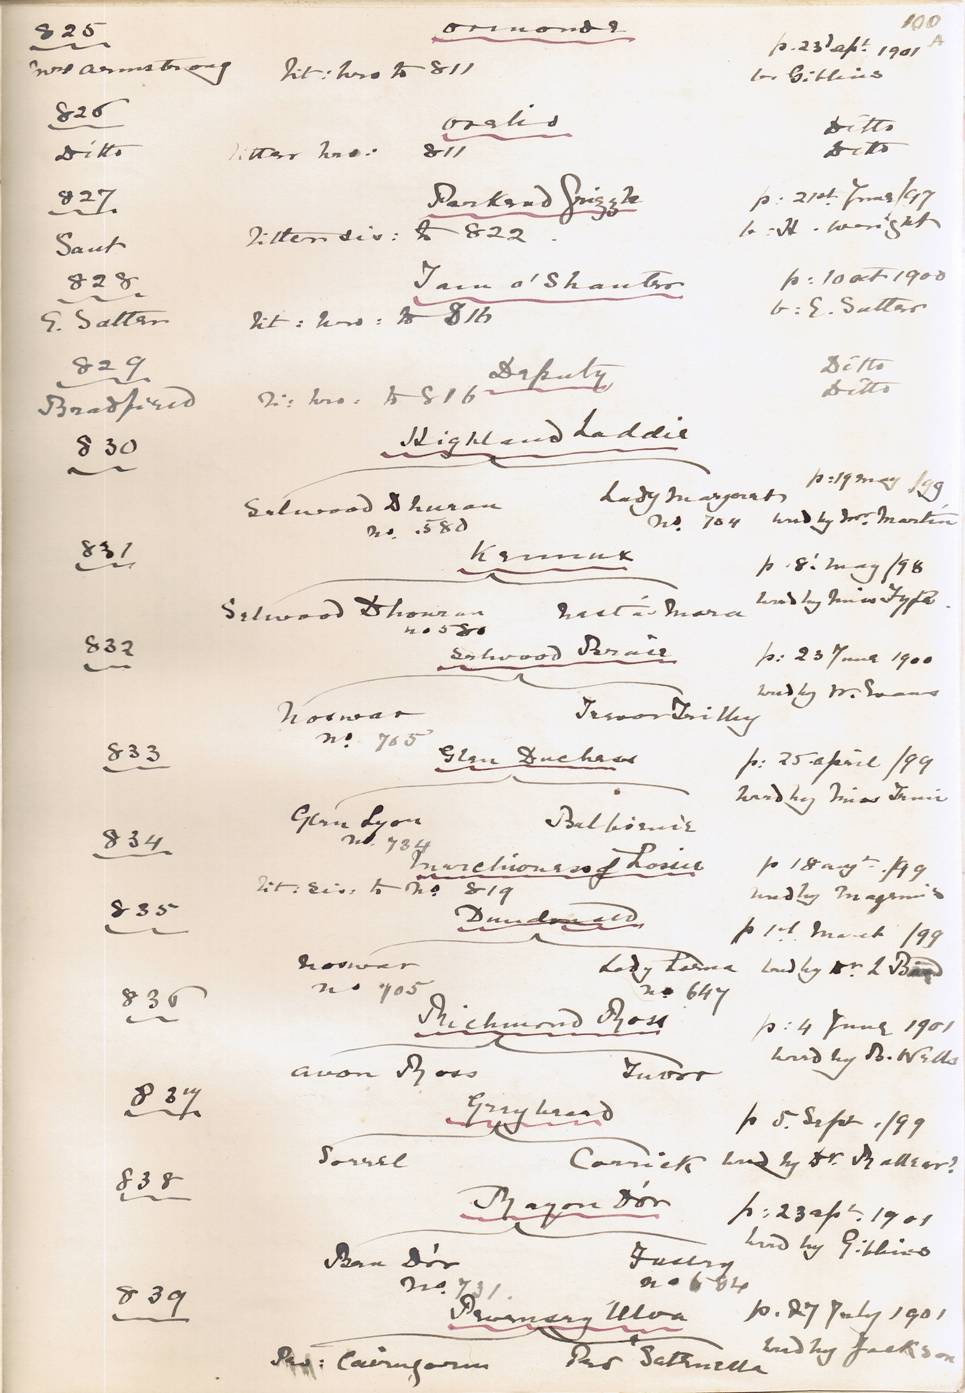 100
A
825 Ormonde p. 23d apl. 1901
Mrs Armstrong lit: bro to 811 br Gibbins
826 Oralid Ditto
Ditto litter bro: 811 Ditto
827 Parkend Grizzle p: 21st June/97
Saut litter sis: to 822. b: H. Wright
828 Tam o'Shanter p: 10 oct 1900
G. Salter lit: bro: to 816 b: E. Salter
829 Deputy Ditto
Bradfield li: bro: to 816 Ditto
830 Highland Laddie
p: 19 may /99
Selwood Dhuran Lady Margaret
no. 580 no. 704 bred by Mr. Martin
831 Kermux p. 8: may /98
Selwood Dhouran bred by Miss Fyfe.
no 580
832 Selwood Prairie p: 23 June 1900
bred by W. Evans
Noswar Trevor Trilby
no. 765
833 Glen Duchess p: 25 april /99
bred by Miss
Glen Lyon Balbirnie
no. 734
834 Marchioness of Lossie p 18 augt. /99
lit: sis: to no 819 bred by Magennis
835 Dundonald p 1st March /99
Noswar Lady Lorna bred by Dr. L
no 705 no 647
836 Richmond Ross p: 4 June 1901
bred by B. Wells
Avon Ross Tudor
837 Greybeard p 5. Sept. /99
Sorrel Carrick bred by Dr.
838 Rayon D'or p: 23 apl. 1901
bred by Gibbins
Ben D'or
no. 731. no 684
839 Pevensey Ulva p. 27 July 1901
bred by Jackson
Pev: Cairngorm Pev Saternella